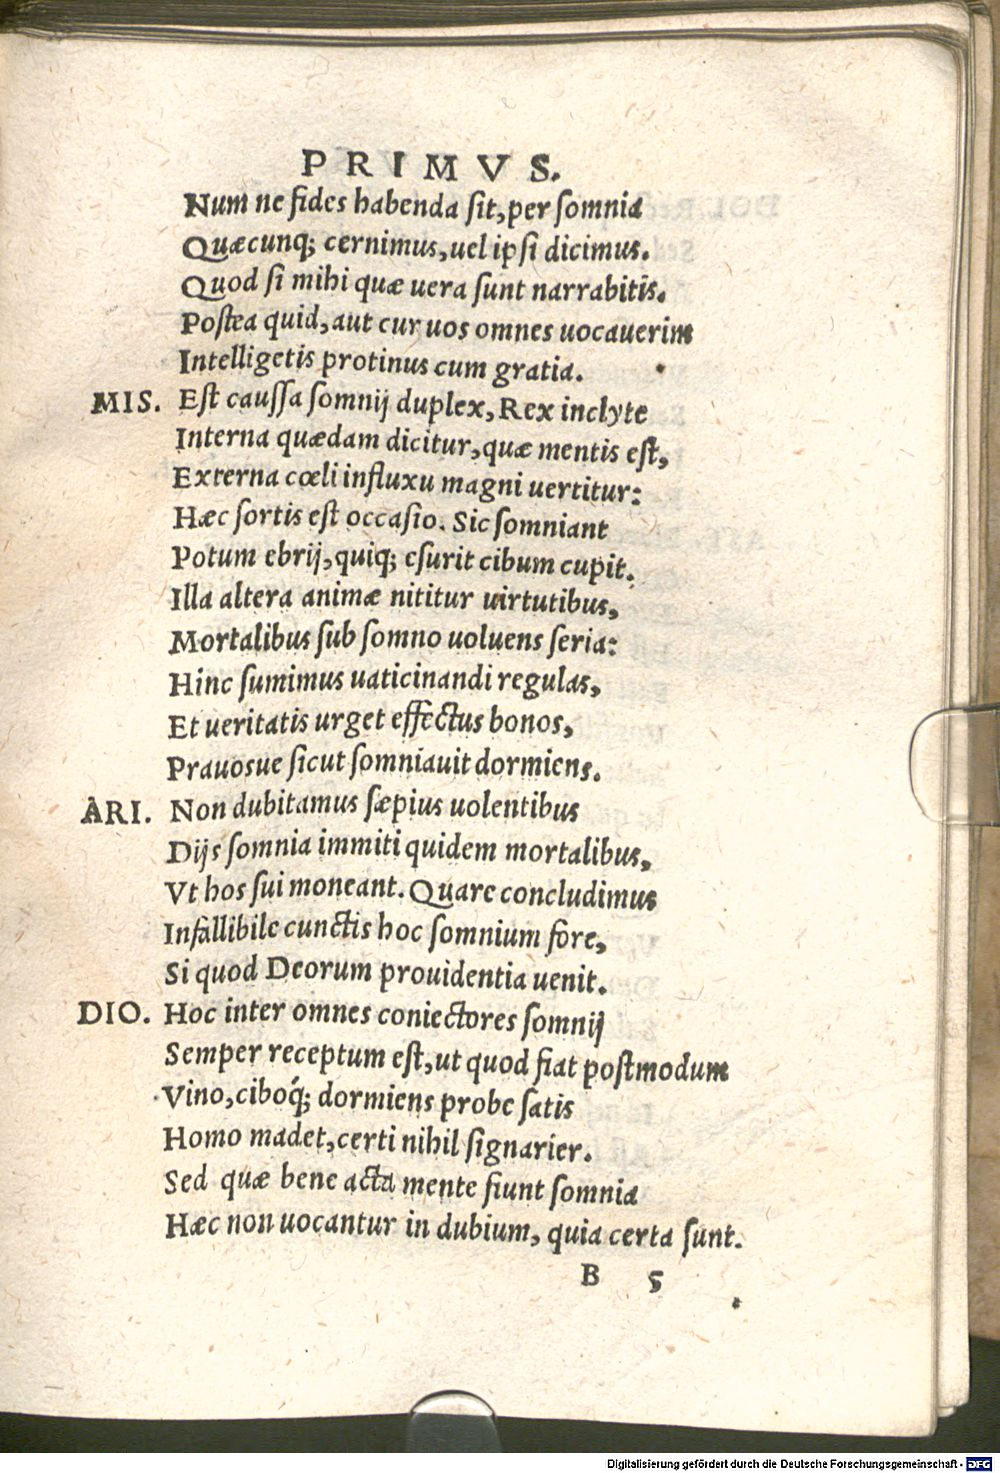 PRIMVS.
Num ne fides habenda sit, per somnia
Quæcunq; cernimus, uel ipsi dicimus.
Quod si mihi quæ uera sunt narrabitis.
Postea quid, aut cur uos omnes uocauerim
Intelligetis protinus cum gratia.
MIS. Est caussa somnij duplex, Rex inclyte
Interna quædam dicitur, quæ mentis est,
Externa cœli influxu magni uertitur:
Hæc sortis est occasio. Sic somniant
Potum ebrij, quiq; esurit cibum cupit.
Illa altera animæ nititur uirtutibus,
Mortalibus sub somno uoluens seria:
Hinc sumimus uaticinandi regulas,
Et ueritatis urget effectus bonos,
Prauosue sicut somniauit dormiens.
ARI. Non dubitamus sæpius uolentibus
Dijs somnia immiti quidem mortalibus,
Vt hos sui moneant. Quare concludimus
Infallibile cunctis hoc somnium fore,
Si quod Deorum prouidentia uenit.
DIO. Hoc inter omnes coniectores somnij
Semper receptum est, ut quod fiat postmodum
Vino, ciboq́; dormiens probe satis
Homo madet, certi nihil signarier.
Sed quæ bene acta mente fiunt somnia
Hæc non uocantur in dubium, quia certa sunt.
B 5
Digitalisierung gefördert durch die Deutsche Forschungsgemeinschaft - DFG